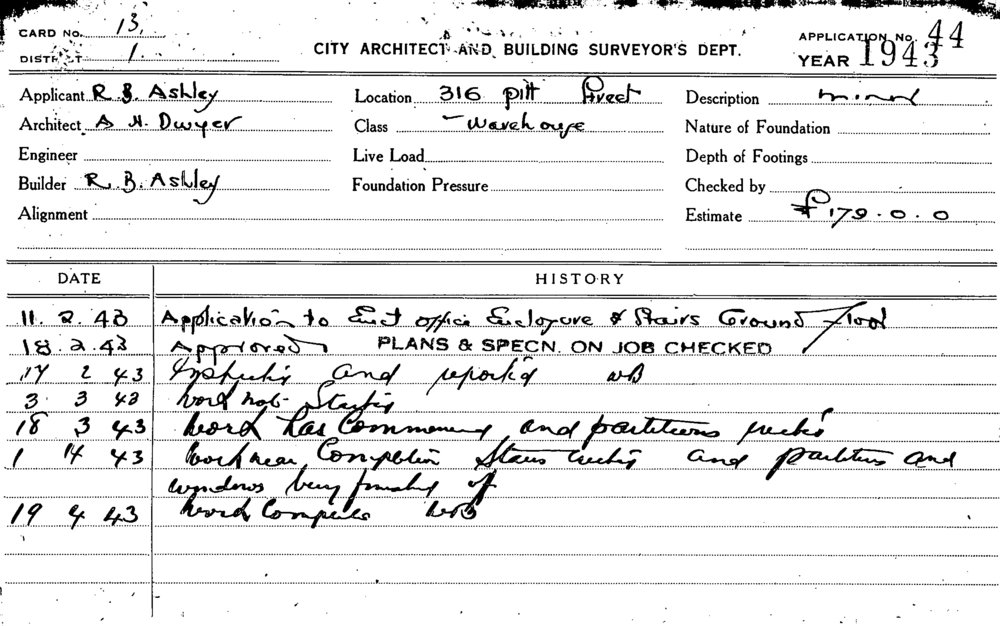 CARD NO. 13.
APPLICATION NO. 44
DISTRICT 1.
CITY ARCHITECT AND BUILDING SURVEYOR'S DEPT.
YEAR 1943
Applicant R B Ashley
Location 316 Pitt Street
Description minor
Architect A H. Dwyer
Class Warehouse
Nature of Foundation
Engineer
Live Load
Depth of Footings
Builder R. B. Ashley
Foundation Pressure
Checked by
Alignment
Estimate £179.0.0
DATE HISTORY
11. 2. 43 Application to Erect office Enclosure & Stairs Ground Floor
18. 2. 43 Approved PLANS & SPECN. ON JOB CHECKED
17 2 43 and WB
3 3 43 Work not
18 3 43 Work has Commenced and partitions
1 4 43 Work near Completion Stairs and partitions and
windows being
19 4 43 Work WB